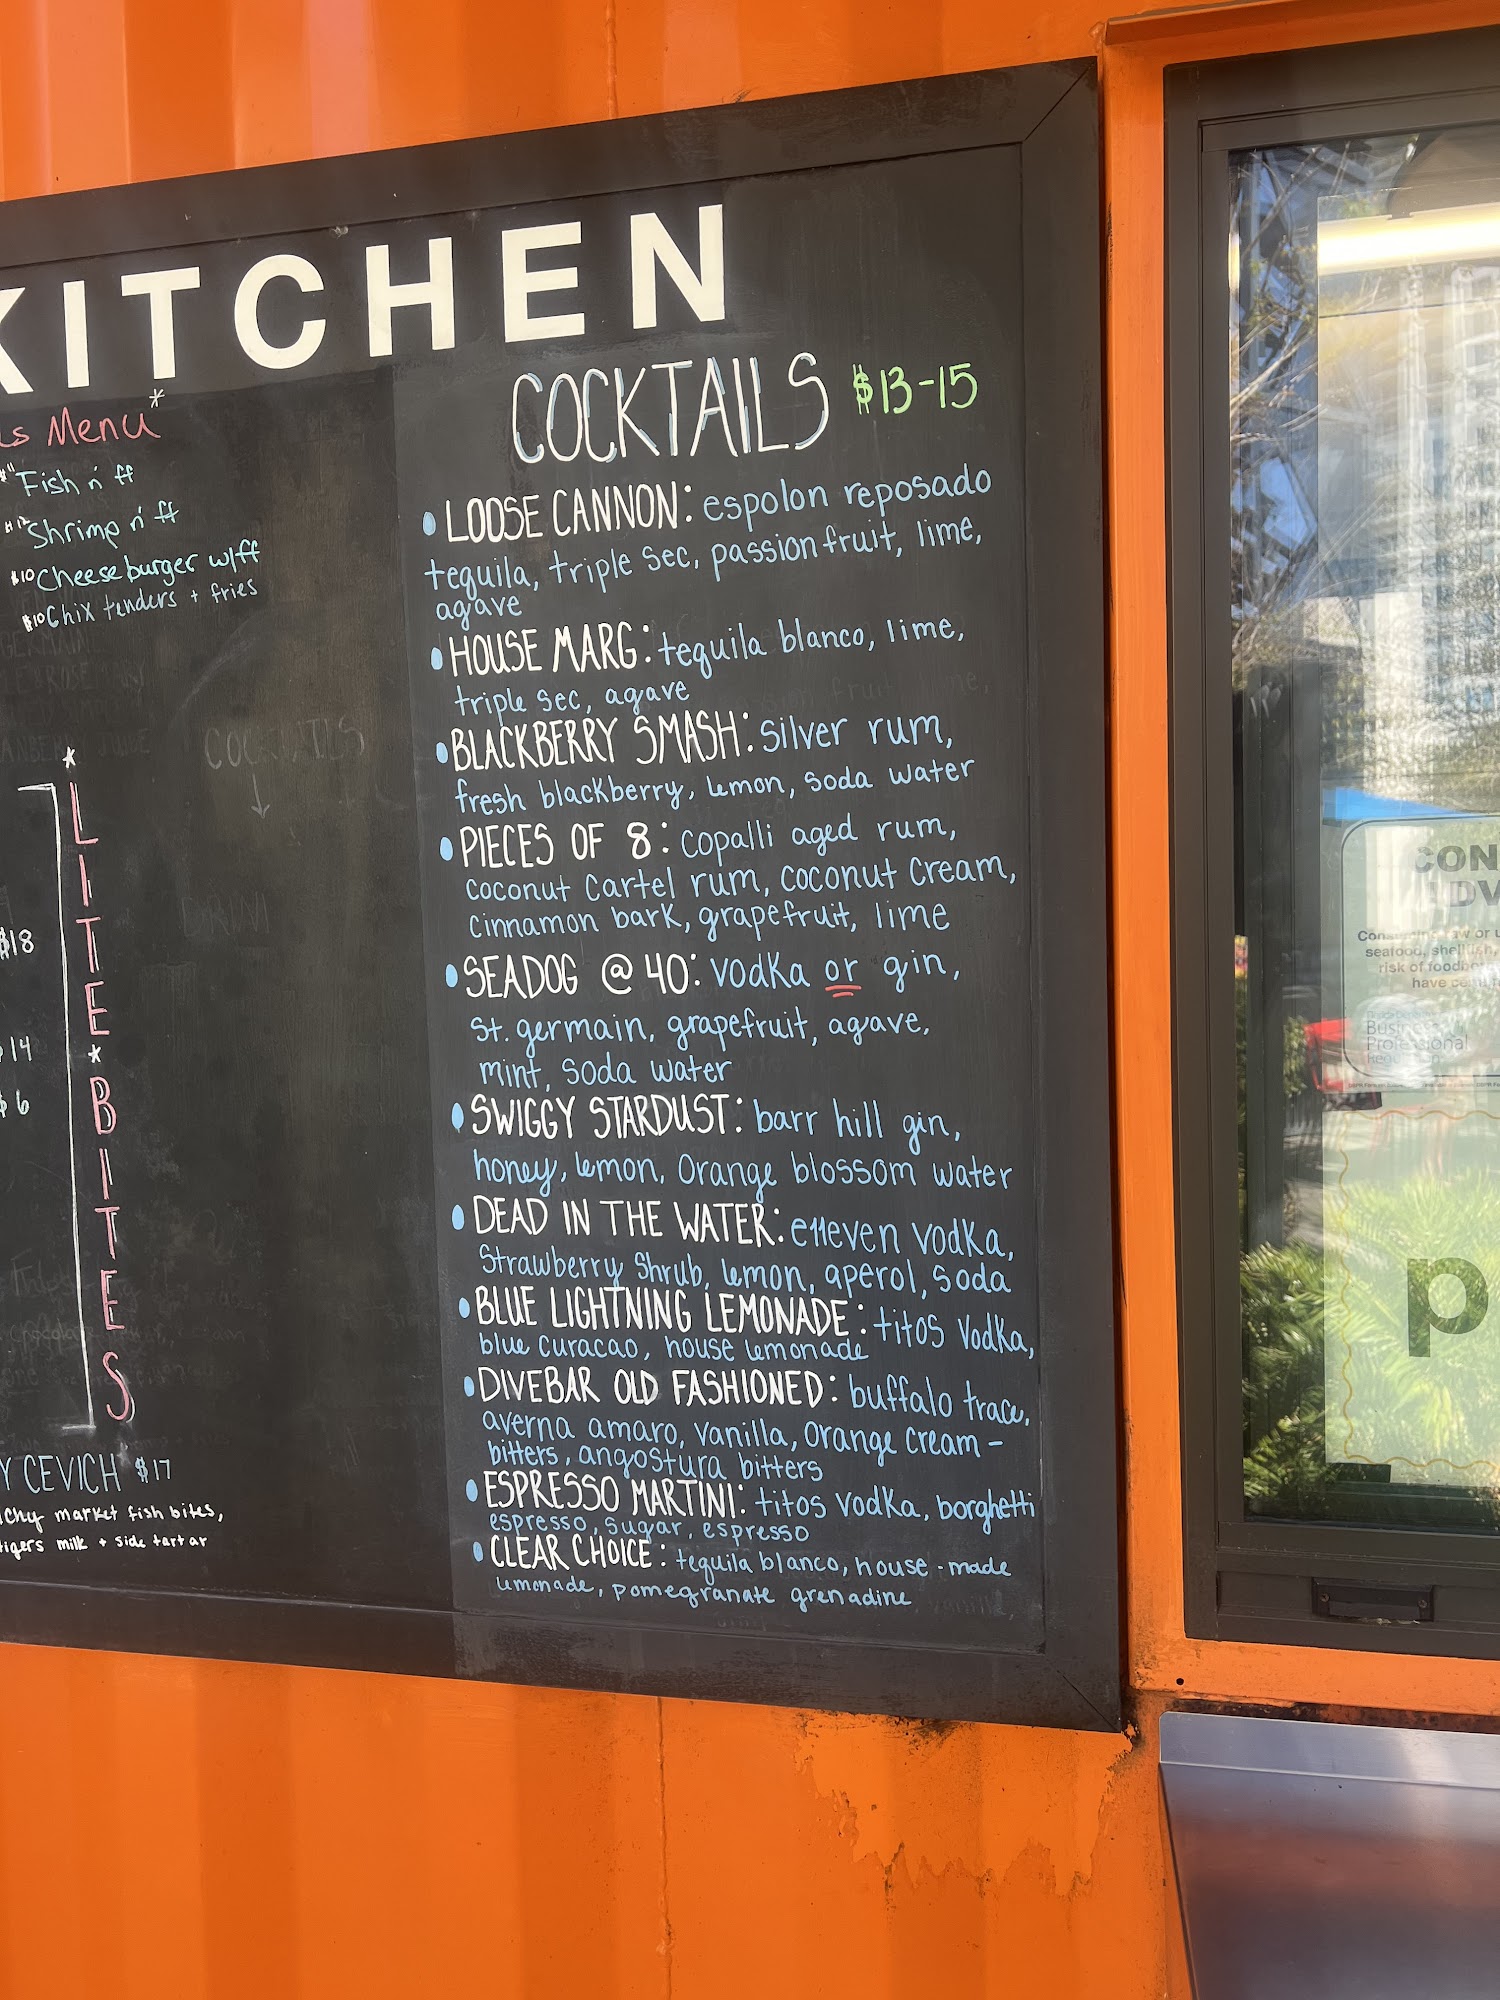 KITCHEN
Menu*
Fish n' ff
$12 Shrimp n' ff
$10 Cheeseburger w/ff
$10 Chix tenders + fries
COCKTAILS
*LITE*BITES
$18
$14
$6
CEVICH* $17
market fish bites,
tigers milk + side tartar
COCKTAILS $13-15
• LOOSE CANNON: espolon reposado
tequila, triple sec, passion fruit, lime,
agave
• HOUSE MARG: tequila blanco, lime,
triple sec, agave
• BLACKBERRY SMASH: silver rum,
fresh blackberry, lemon, soda water
• PIECES OF 8: copalli aged rum,
coconut cartel rum, coconut cream,
cinnamon bark, grapefruit, lime
• SEADOG @ 40: vodka or gin,
st. germain, grapefruit, agave,
mint, soda water
• SWIGGY STARDUST: barr hill gin,
honey, lemon, orange blossom water
• DEAD IN THE WATER: e11even vodka,
Strawberry Shrub, lemon, aperol, soda
• BLUE LIGHTNING LEMONADE: titos vodka,
blue curacao, house lemonade
• DIVEBAR OLD FASHIONED: buffalo trace,
averna amaro, vanilla, orange cream-
bitters, angostura bitters
• ESPRESSO MARTINI: titos vodka, borghetti
espresso, sugar, espresso
• CLEAR CHOICE: tequila blanco, house-made
lemonade, pomegranate grenadine
CON
ADV
seafood, shellfish,
risk of
Business
Professional
p